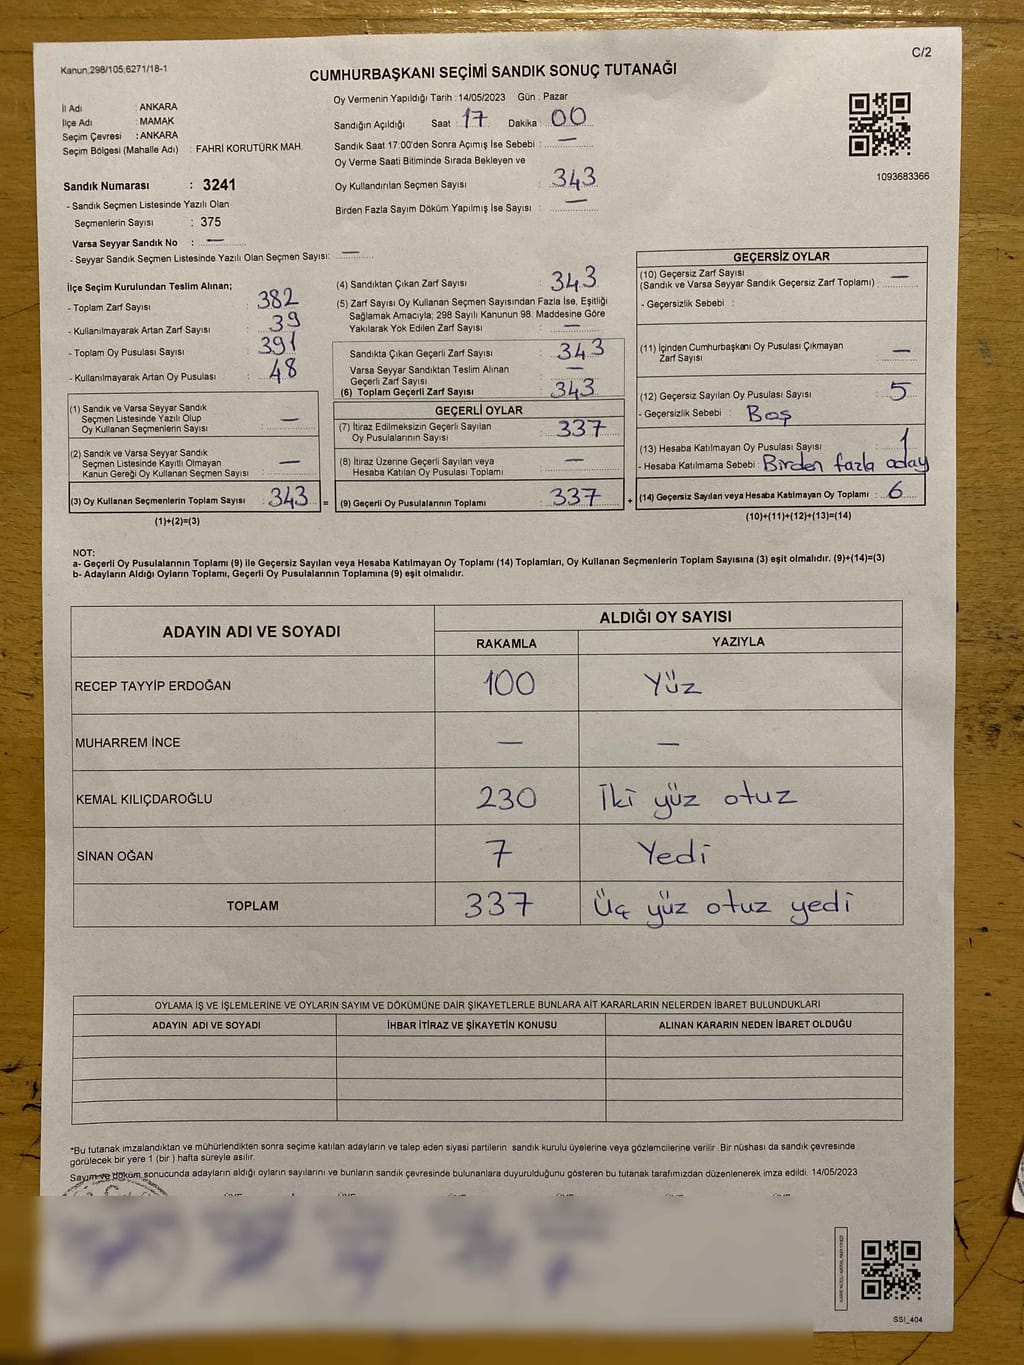 C/2
Kanun,298/105;6271/18-1
CUMHURBAŞKANI SEÇİMİ SANDIK SONUÇ TUTANAĞI
İl Adı : ANKARA
İlçe Adı : MAMAK
Seçim Çevresi : ANKARA
Seçim Bölgesi (Mahalle Adı) : FAHRİ KORUTÜRK MAH.
Sandık Numarası : 3241
- Sandık Seçmen Listesinde Yazılı Olan
Seçmenlerin Sayısı : 375
Varsa Seyyar Sandık No : —
- Seyyar Sandık Seçmen Listesinde Yazılı Olan Seçmen Sayısı: —
Oy Vermenin Yapıldığı Tarih : 14/05/2023 Gün : Pazar
Sandığın Açıldığı Saat : 17 Dakika : 00
Sandık Saat 17:00'den Sonra Açımış İse Sebebi : —
Oy Verme Saati Bitiminde Sırada Bekleyen ve
Oy Kullandırılan Seçmen Sayısı : 343
Birden Fazla Sayım Döküm Yapılmış İse Sayısı : —
1093683366
İlçe Seçim Kurulundan Teslim Alınan;
- Toplam Zarf Sayısı : 382
- Kullanılmayarak Artan Zarf Sayısı : 39
- Toplam Oy Pusulası Sayısı : 391
- Kullanılmayarak Artan Oy Pusulası : 48
(1) Sandık ve Varsa Seyyar Sandık
Seçmen Listesinde Yazılı Olup
Oy Kullanan Seçmenlerin Sayısı : —
(2) Sandık ve Varsa Seyyar Sandık
Seçmen Listesinde Kayıtlı Olmayan
Kanun Gereği Oy Kullanan Seçmen Sayısı : —
(3) Oy Kullanan Seçmenlerin Toplam Sayısı : 343 =
(1)+(2)=(3)
(4) Sandıktan Çıkan Zarf Sayısı : 343
(5) Zarf Sayısı Oy Kullanan Seçmen Sayısından Fazla İse, Eşitliği
Sağlamak Amacıyla; 298 Sayılı Kanunun 98. Maddesine Göre
Yakılarak Yok Edilen Zarf Sayısı : —
Sandıkta Çıkan Geçerli Zarf Sayısı : 343
Varsa Seyyar Sandıktan Teslim Alınan
Geçerli Zarf Sayısı : —
(6) Toplam Geçerli Zarf Sayısı : 343
GEÇERLİ OYLAR
(7) İtiraz Edilmeksizin Geçerli Sayılan
Oy Pusulalarının Sayısı : 337
(8) İtiraz Üzerine Geçerli Sayılan veya
Hesaba Katılan Oy Pusulası Toplamı : —
(9) Geçerli Oy Pusulalarının Toplamı : 337 +
GEÇERSİZ OYLAR
(10) Geçersiz Zarf Sayısı
(Sandık ve Varsa Seyyar Sandık Geçersiz Zarf Toplamı) : —
- Geçersizlik Sebebi :
(11) İçinden Cumhurbaşkanı Oy Pusulası Çıkmayan
Zarf Sayısı : —
(12) Geçersiz Sayılan Oy Pusulası Sayısı : 5
- Geçersizlik Sebebi : Boş
(13) Hesaba Katılmayan Oy Pusulası Sayısı : 1
- Hesaba Katılmama Sebebi : Birden fazla aday
(14) Geçersiz Sayılan veya Hesaba Katılmayan Oy Toplamı : 6
(10)+(11)+(12)+(13)=(14)
NOT:
a- Geçerli Oy Pusulalarının Toplamı (9) ile Geçersiz Sayılan veya Hesaba Katılmayan Oy Toplamı (14) Toplamları, Oy Kullanan Seçmenlerin Toplam Sayısına (3) eşit olmalıdır. (9)+(14)=(3)
b- Adayların Aldığı Oyların Toplamı, Geçerli Oy Pusulalarının Toplamına (9) eşit olmalıdır.
ADAYIN ADI VE SOYADI ALDIĞI OY SAYISI
RAKAMLA YAZIYLA
RECEP TAYYİP ERDOĞAN 100 Yüz
MUHARREM İNCE — —
KEMAL KILIÇDAROĞLU 230 İki yüz otuz
SİNAN OĞAN 7 Yedi
TOPLAM 337 Üç yüz otuz yedi
OYLAMA İŞ VE İŞLEMLERİNE VE OYLARIN SAYIM VE DÖKÜMÜNE DAİR ŞİKAYETLERLE BUNLARA AİT KARARLARIN NELERDEN İBARET BULUNDUKLARI
ADAYIN ADI VE SOYADI İHBAR İTİRAZ VE ŞİKAYETİN KONUSU ALINAN KARARIN NEDEN İBARET OLDUĞU
*Bu tutanak imzalandıktan ve mühürlendikten sonra seçime katılan adayların ve talep eden siyasi partilerin sandık kurulu üyelerine veya gözlemcilerine verilir. Bir nüshası da sandık çevresinde
görülecek bir yere 1 (bir ) hafta süreyle asılır.
Sayım ve döküm sonucunda adayların aldığı oyların sayılarını ve bunların sandık çevresinde bulunanlara duyurulduğunu gösteren bu tutanak tarafımızdan düzenlenerek imza edildi. 14/05/2023
SSI_404